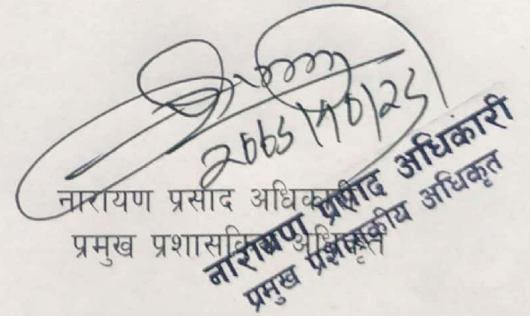 नारायण प्रसाद अधिकारी
प्रमुख प्रशासकिय अधिकृत
नारायण प्रसाद अधिकारी
प्रमुख प्रशासकीय अधिकृत